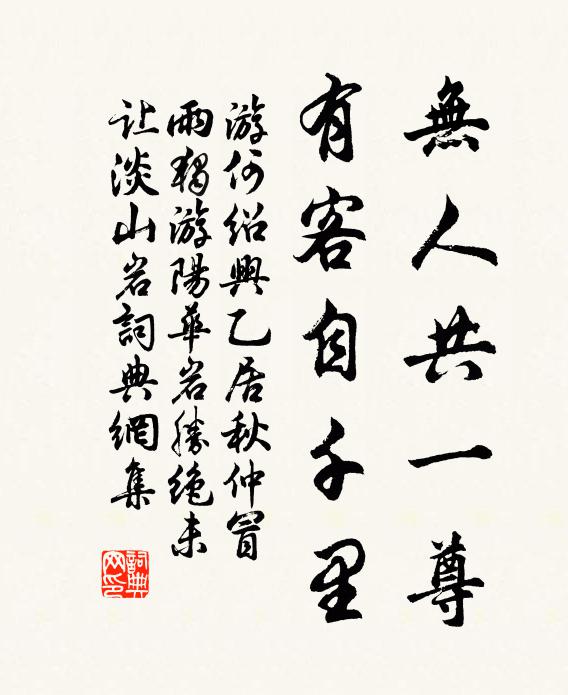 無人共一尊
有客自千里
游何紹興乙居秋仲冒
雨獨游陽華岩勝绝未
让淡山岩詞典網集
詞典网印